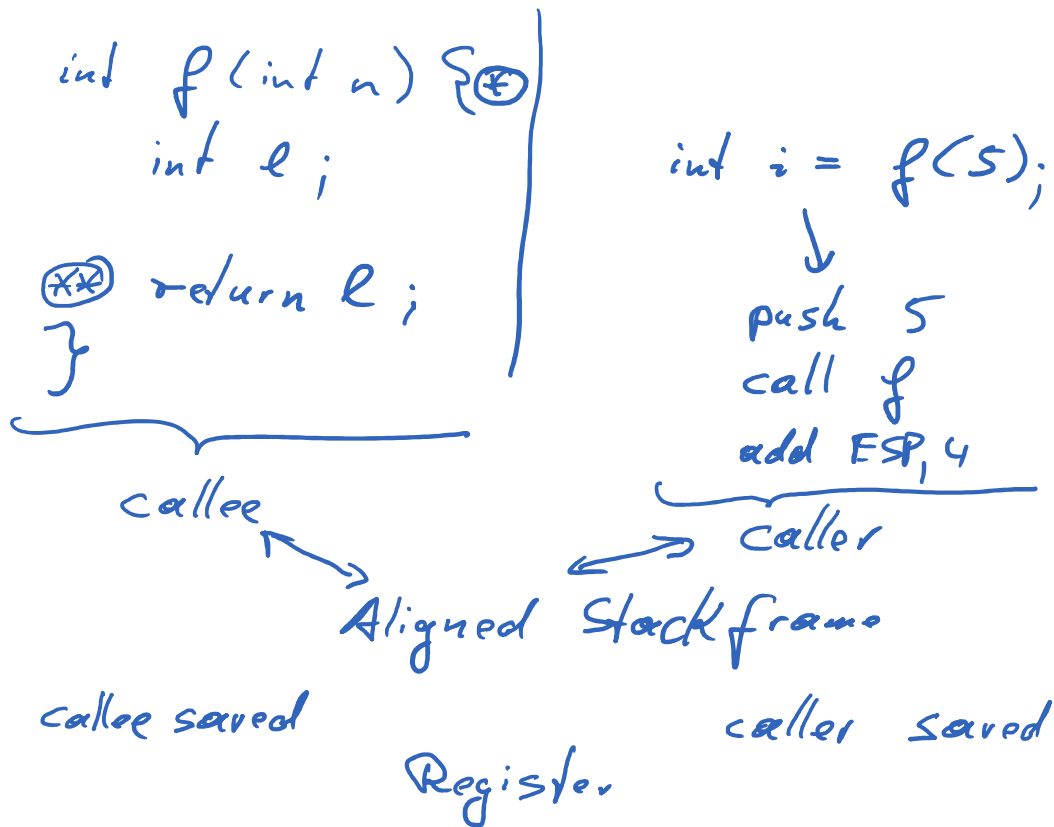 int f(int n) { *
int l;
** return l;
}
callee
int i = f(5);
push 5
call f
add ESP, 4
caller
Aligned Stackframe
callee saved
caller saved
Register